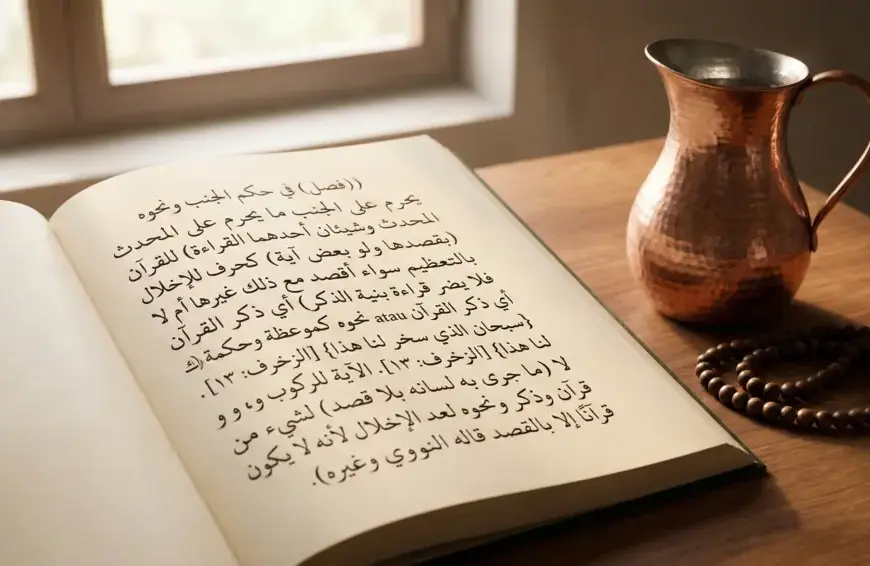 ((فصل) في حكم الجنب ونحوه
يحرم على الجنب ما يحرم على المحدث
المحدث وشيئان أحدهما القراءة) للقرآن
(بقصدها ولو بعض آية) كحرف للإخلال
بالتعظيم سواء أقصد مع ذلك غيرها أم لا
فلا يضر قراءة بنية الذكر) أي ذكر القرآن
أي ذكر القرآن atau نحوه كموعظة وحكمة (ك
{سبحان الذي سخر لنا هذا} [الزخرف: ١٣].
لنا هذا} [الزخرف: ١٣]. الآية للركوب و، و و
لا (ما جرى به لسانه بلا قصد) لشيء من
قرآن وذكر ونحوه لعد الإخلال لأنه لا يكون
قرآنًا إلا بالقصد قاله النووي وغيره).